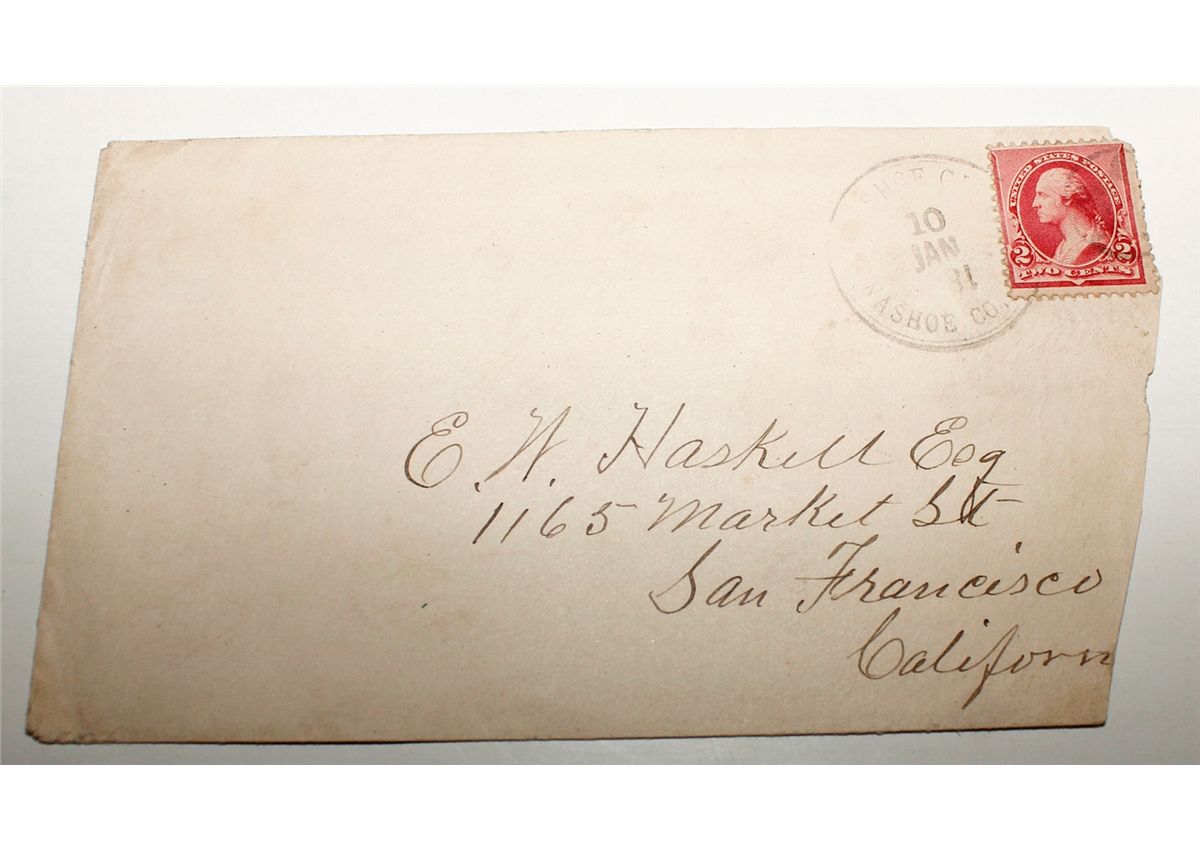 SHOE C
10
JAN
WASHOE CO.
UNITED STATES POSTAGE
2 2
TWO CENTS
E. W. Haskell Esq
1165 Market St
San Francisco
Californ